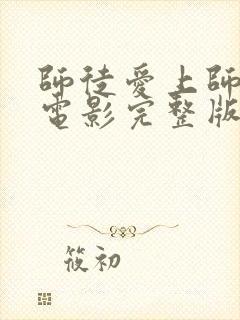 師徒愛上師
電影完整版
筱初